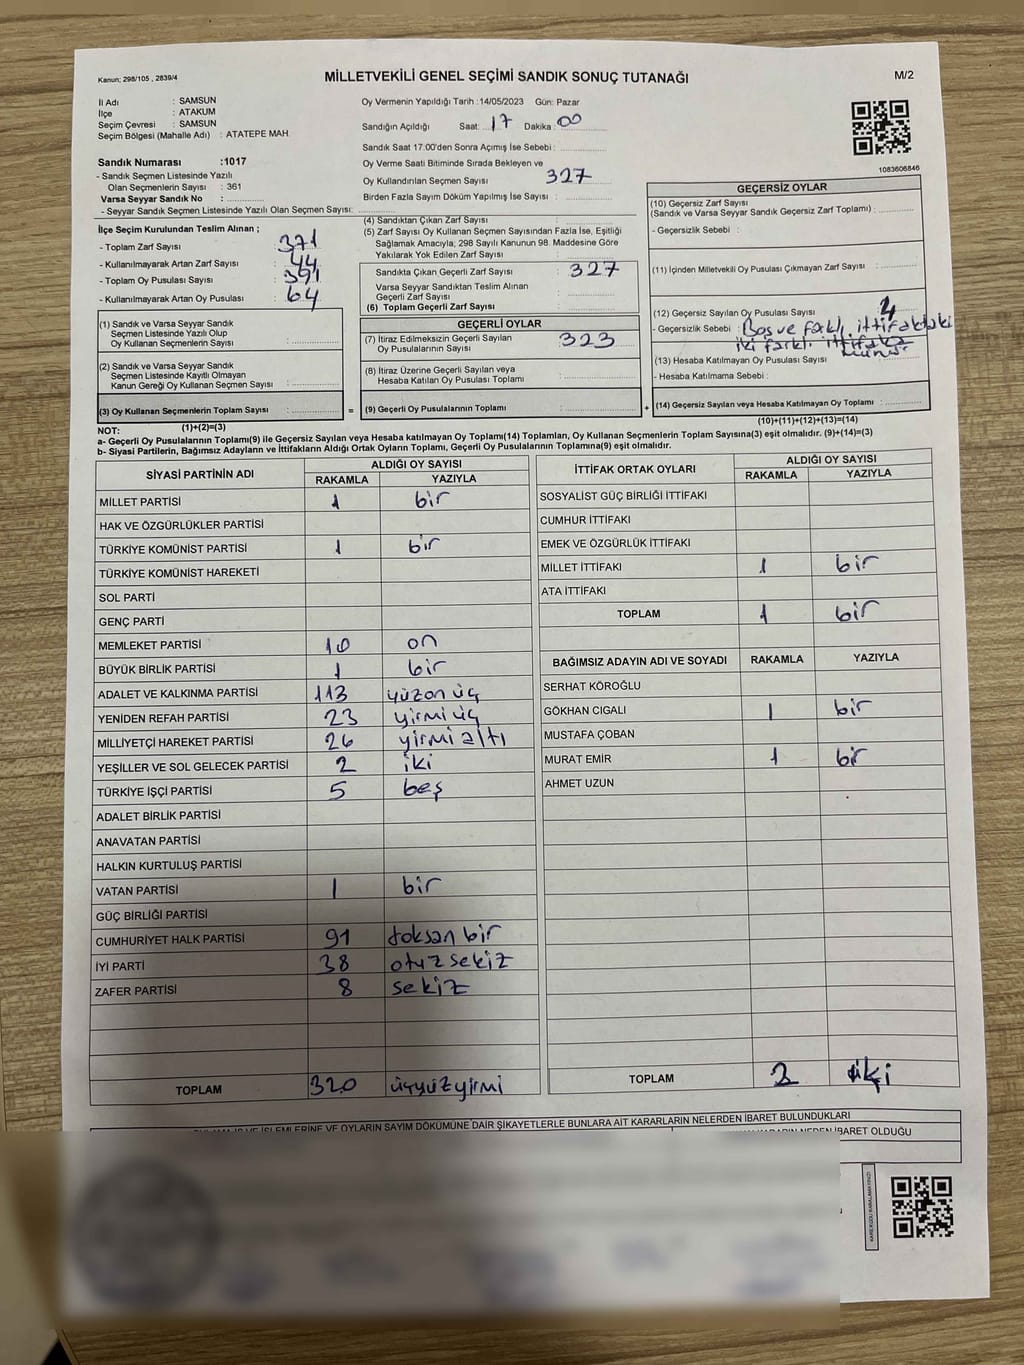 Kanun; 298/105 , 2839/4
MİLLETVEKİLİ GENEL SEÇİMİ SANDIK SONUÇ TUTANAĞI
M/2
İl Adı : SAMSUN
İlçe : ATAKUM
Seçim Çevresi : SAMSUN
Seçim Bölgesi (Mahalle Adı) : ATATEPE MAH.
Sandık Numarası :1017
- Sandık Seçmen Listesinde Yazılı
Olan Seçmenlerin Sayısı : 361
Varsa Seyyar Sandık No :
- Seyyar Sandık Seçmen Listesinde Yazılı Olan Seçmen Sayısı:
İlçe Seçim Kurulundan Teslim Alınan ;
- Toplam Zarf Sayısı : 371
- Kullanılmayarak Artan Zarf Sayısı : 44
- Toplam Oy Pusulası Sayısı : 391
- Kullanılmayarak Artan Oy Pusulası : 64
(1) Sandık ve Varsa Seyyar Sandık
Seçmen Listesinde Yazılı Olup
Oy Kullanan Seçmenlerin Sayısı :
(2) Sandık ve Varsa Seyyar Sandık
Seçmen Listesinde Kayıtlı Olmayan
Kanun Gereği Oy Kullanan Seçmen Sayısı :
(3) Oy Kullanan Seçmenlerin Toplam Sayısı : =
(1)+(2)=(3)
Oy Vermenin Yapıldığı Tarih :14/05/2023 Gün: Pazar
Sandığın Açıldığı Saat: 17 Dakika: 00
Sandık Saat 17.00'den Sonra Açımış İse Sebebi :
Oy Verme Saati Bitiminde Sırada Bekleyen ve
Oy Kullandırılan Seçmen Sayısı : 327
Birden Fazla Sayım Döküm Yapılmış İse Sayısı :
(4) Sandıktan Çıkan Zarf Sayısı :
(5) Zarf Sayısı Oy Kullanan Seçmen Sayısından Fazla İse, Eşitliği
Sağlamak Amacıyla, 298 Sayılı Kanunun 98. Maddesine Göre
Yakılarak Yok Edilen Zarf Sayısı :
Sandıkta Çıkan Geçerli Zarf Sayısı : 327
Varsa Seyyar Sandıktan Teslim Alınan
Geçerli Zarf Sayısı :
(6) Toplam Geçerli Zarf Sayısı :
GEÇERLİ OYLAR
(7) İtiraz Edilmeksizin Geçerli Sayılan
Oy Pusulalarının Sayısı : 323
(8) İtiraz Üzerine Geçerli Sayılan veya
Hesaba Katılan Oy Pusulası Toplamı :
(9) Geçerli Oy Pusulalarının Toplamı : +
1083606846
GEÇERSİZ OYLAR
(10) Geçersiz Zarf Sayısı
(Sandık ve Varsa Seyyar Sandık Geçersiz Zarf Toplamı) :
- Geçersizlik Sebebi :
(11) İçinden Milletvekili Oy Pusulası Çıkmayan Zarf Sayısı :
(12) Geçersiz Sayılan Oy Pusulası Sayısı : 4
- Geçersizlik Sebebi : Boş ve farklı ittifaktaki
iki farklı ittifaka
(13) Hesaba Katılmayan Oy Pusulası Sayısı : mühür.
- Hesaba Katılmama Sebebi :
(14) Geçersiz Sayılan veya Hesaba Katılmayan Oy Toplamı :
(10)+(11)+(12)+(13)=(14)
NOT:
a- Geçerli Oy Pusulalarının Toplamı(9) ile Geçersiz Sayılan veya Hesaba katılmayan Oy Toplamı(14) Toplamları, Oy Kullanan Seçmenlerin Toplam Sayısına(3) eşit olmalıdır. (9)+(14)=(3)
b- Siyasi Partilerin, Bağımsız Adayların ve İttifakların Aldığı Ortak Oyların Toplamı, Geçerli Oy Pusulalarının Toplamına(9) eşit olmalıdır.
SİYASİ PARTİNİN ADI ALDIĞI OY SAYISI
RAKAMLA YAZIYLA
MİLLET PARTİSİ 1 bir
HAK VE ÖZGÜRLÜKLER PARTİSİ
TÜRKİYE KOMÜNİST PARTİSİ 1 bir
TÜRKİYE KOMÜNİST HAREKETİ
SOL PARTİ
GENÇ PARTİ
MEMLEKET PARTİSİ 10 on
BÜYÜK BİRLİK PARTİSİ 1 bir
ADALET VE KALKINMA PARTİSİ 113 yüzon üç
YENİDEN REFAH PARTİSİ 23 yirmi üç
MİLLİYETÇİ HAREKET PARTİSİ 26 yirmi altı
YEŞİLLER VE SOL GELECEK PARTİSİ 2 iki
TÜRKİYE İŞÇİ PARTİSİ 5 beş
ADALET BİRLİK PARTİSİ
ANAVATAN PARTİSİ
HALKIN KURTULUŞ PARTİSİ
VATAN PARTİSİ 1 bir
GÜÇ BİRLİĞİ PARTİSİ
CUMHURİYET HALK PARTİSİ 91 doksan bir
İYİ PARTİ 38 otuz sekiz
ZAFER PARTİSİ 8 sekiz
TOPLAM 320 üçyüz yirmi
İTTİFAK ORTAK OYLARI ALDIĞI OY SAYISI
RAKAMLA YAZIYLA
SOSYALİST GÜÇ BİRLİĞİ İTTİFAKI
CUMHUR İTTİFAKI
EMEK VE ÖZGÜRLÜK İTTİFAKI
MİLLET İTTİFAKI 1 bir
ATA İTTİFAKI
TOPLAM 1 bir
BAĞIMSIZ ADAYIN ADI VE SOYADI RAKAMLA YAZIYLA
SERHAT KÖROĞLU
GÖKHAN CIGALI 1 bir
MUSTAFA ÇOBAN
MURAT EMİR 1 bir
AHMET UZUN
TOPLAM 2 iki
İŞLEMLERİNE VE OYLARIN SAYIM DÖKÜMÜNE DAİR ŞİKAYETLERLE BUNLARA AİT KARARLARIN NELERDEN İBARET BULUNDUKLARI
İBARET OLDUĞU